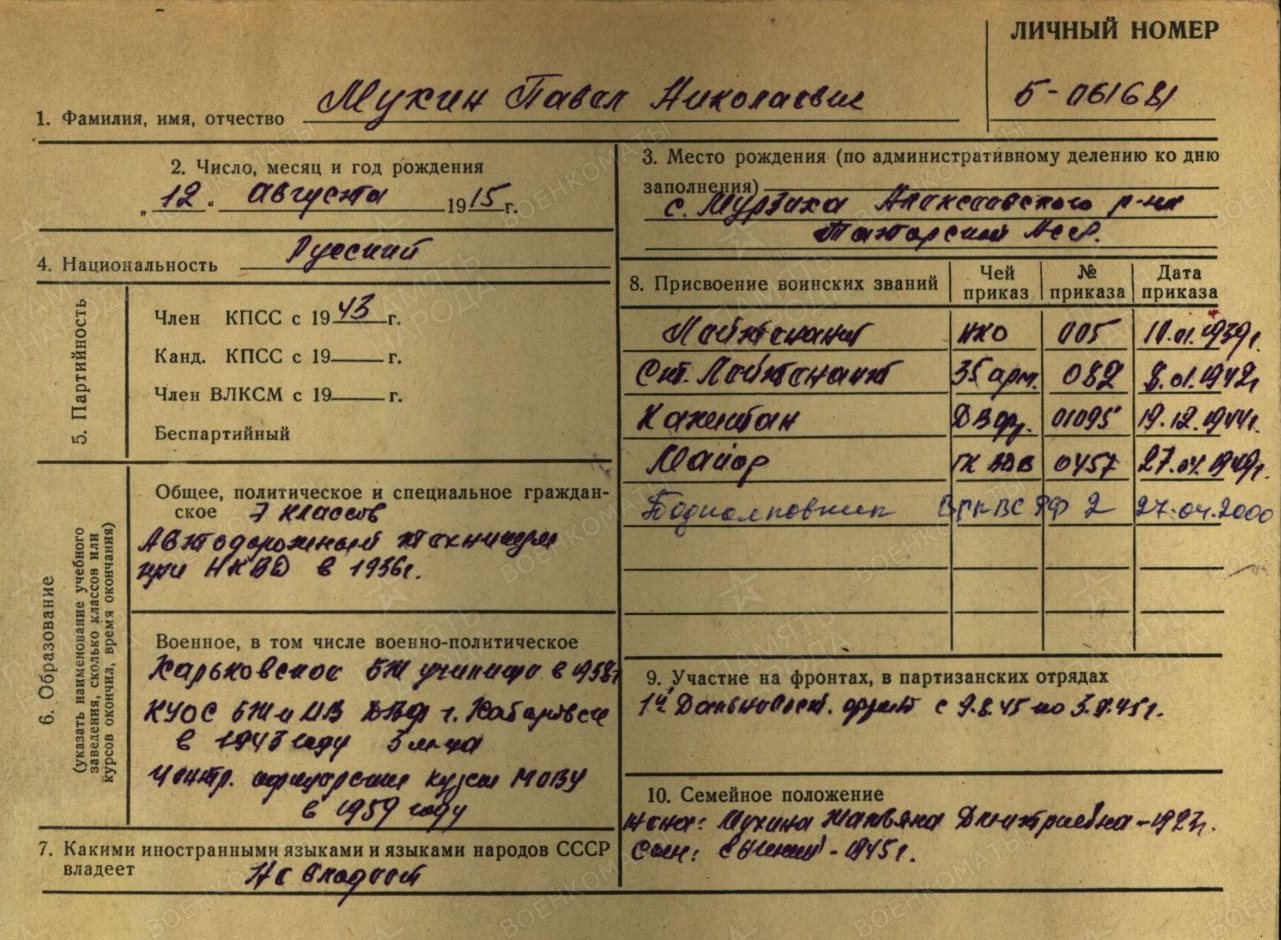 ЛИЧНЫЙ НОМЕР
Б-061681
1. Фамилия, имя, отчество Мухин Павел Николаевич
2. Число, месяц и год рождения
„12“ августа 1915 г.
3. Место рождения (по административному делению ко дню
заполнения)
с. Мурзиха Алексеевского р-на
Татарской АССР.
4. Национальность Русский
5. Партийность
Член КПСС с 1943 г.
Канд. КПСС с 19 г.
Член ВЛКСМ с 19 г.
Беспартийный
6. Образование
(указать наименование учебного
заведения, сколько классов или
курсов окончил, время окончания)
Общее, политическое и специальное граждан-
ское 7 классов
Автодорожный техникум
при НКВД в 1936г.
Военное, в том числе военно-политическое
Харьковское БТ училище в 1938г
КУОС БТ и МВ ДВФ г. Хабаровск
в 1943 году 3 м-ца
Центр. офицерские курсы
в 1959 году
7. Какими иностранными языками и языками народов СССР
владеет Не владеет
8. Присвоение воинских званий Чей приказ № приказа Дата приказа
Лейтенант НКО 005 10.01.1939г.
Ст. Лейтенант 35 арм. 082 8.01.1942г.
Капитан ДВфр. 01095 19.12.1944г.
Майор ГК ДВ 0457 27.04.1949г.
Подполковник РФ 2 27.04.2000
9. Участие на фронтах, в партизанских отрядах
1й Дальневост. фронт с 9.8.45 по 3.9.45г.
10. Семейное положение
жена: Мухина Татьяна Дмитриевна - 1923г.
сын: Евгений - 1945г.
ПАМЯТЬ НАРОДА
ВОЕНКОМАТЫ